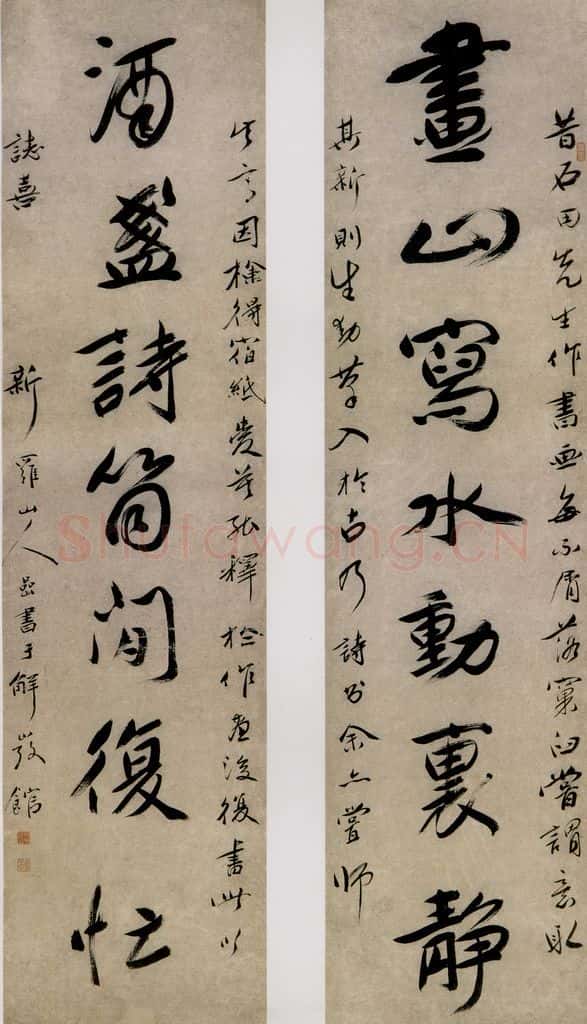 昔石田先生作書画每不屑落窠臼嘗謂意取
畫山寫水動裏靜
其新則生動筆入於古乃詩余亦嘗師
其言因檢得宿紙愛其弛釋於作畫後復書此以
酒盞詩筒閒復忙
誌喜 新羅山人嵒書于解弢館
Shufawang.CN